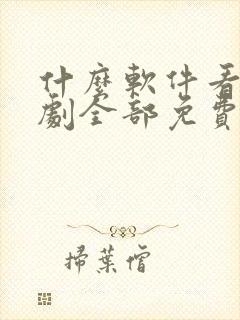 什麼軟件看
劇全部免費
掃葉僧